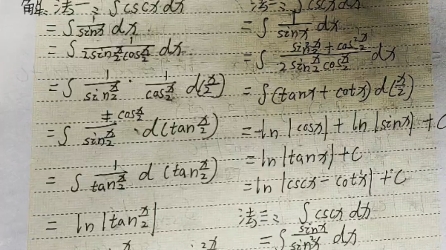 解:法一:∫cscxdx
=∫1/sinx dx
=∫1/(2sin x/2 cos x/2) dx
=∫1/(sin x/2)·1/(cos x/2) d(x/2)
=∫(cos x/2)/(sin x/2)·d(tan x/2)
=∫1/(tan x/2) d(tan x/2)
=ln|tan x/2|
法二:∫cscxdx
=∫1/sinx dx
=∫(sin² x/2+cos² x/2)/(2sin x/2 cos x/2) dx
=∫(tanx+cotx)d(x/2)
=-ln|cosx|+ln|sinx|+C
=ln|tanx|+C
=ln|cscx-cotx|+C
法三:∫cscxdx
=∫sinx/sin²x dx